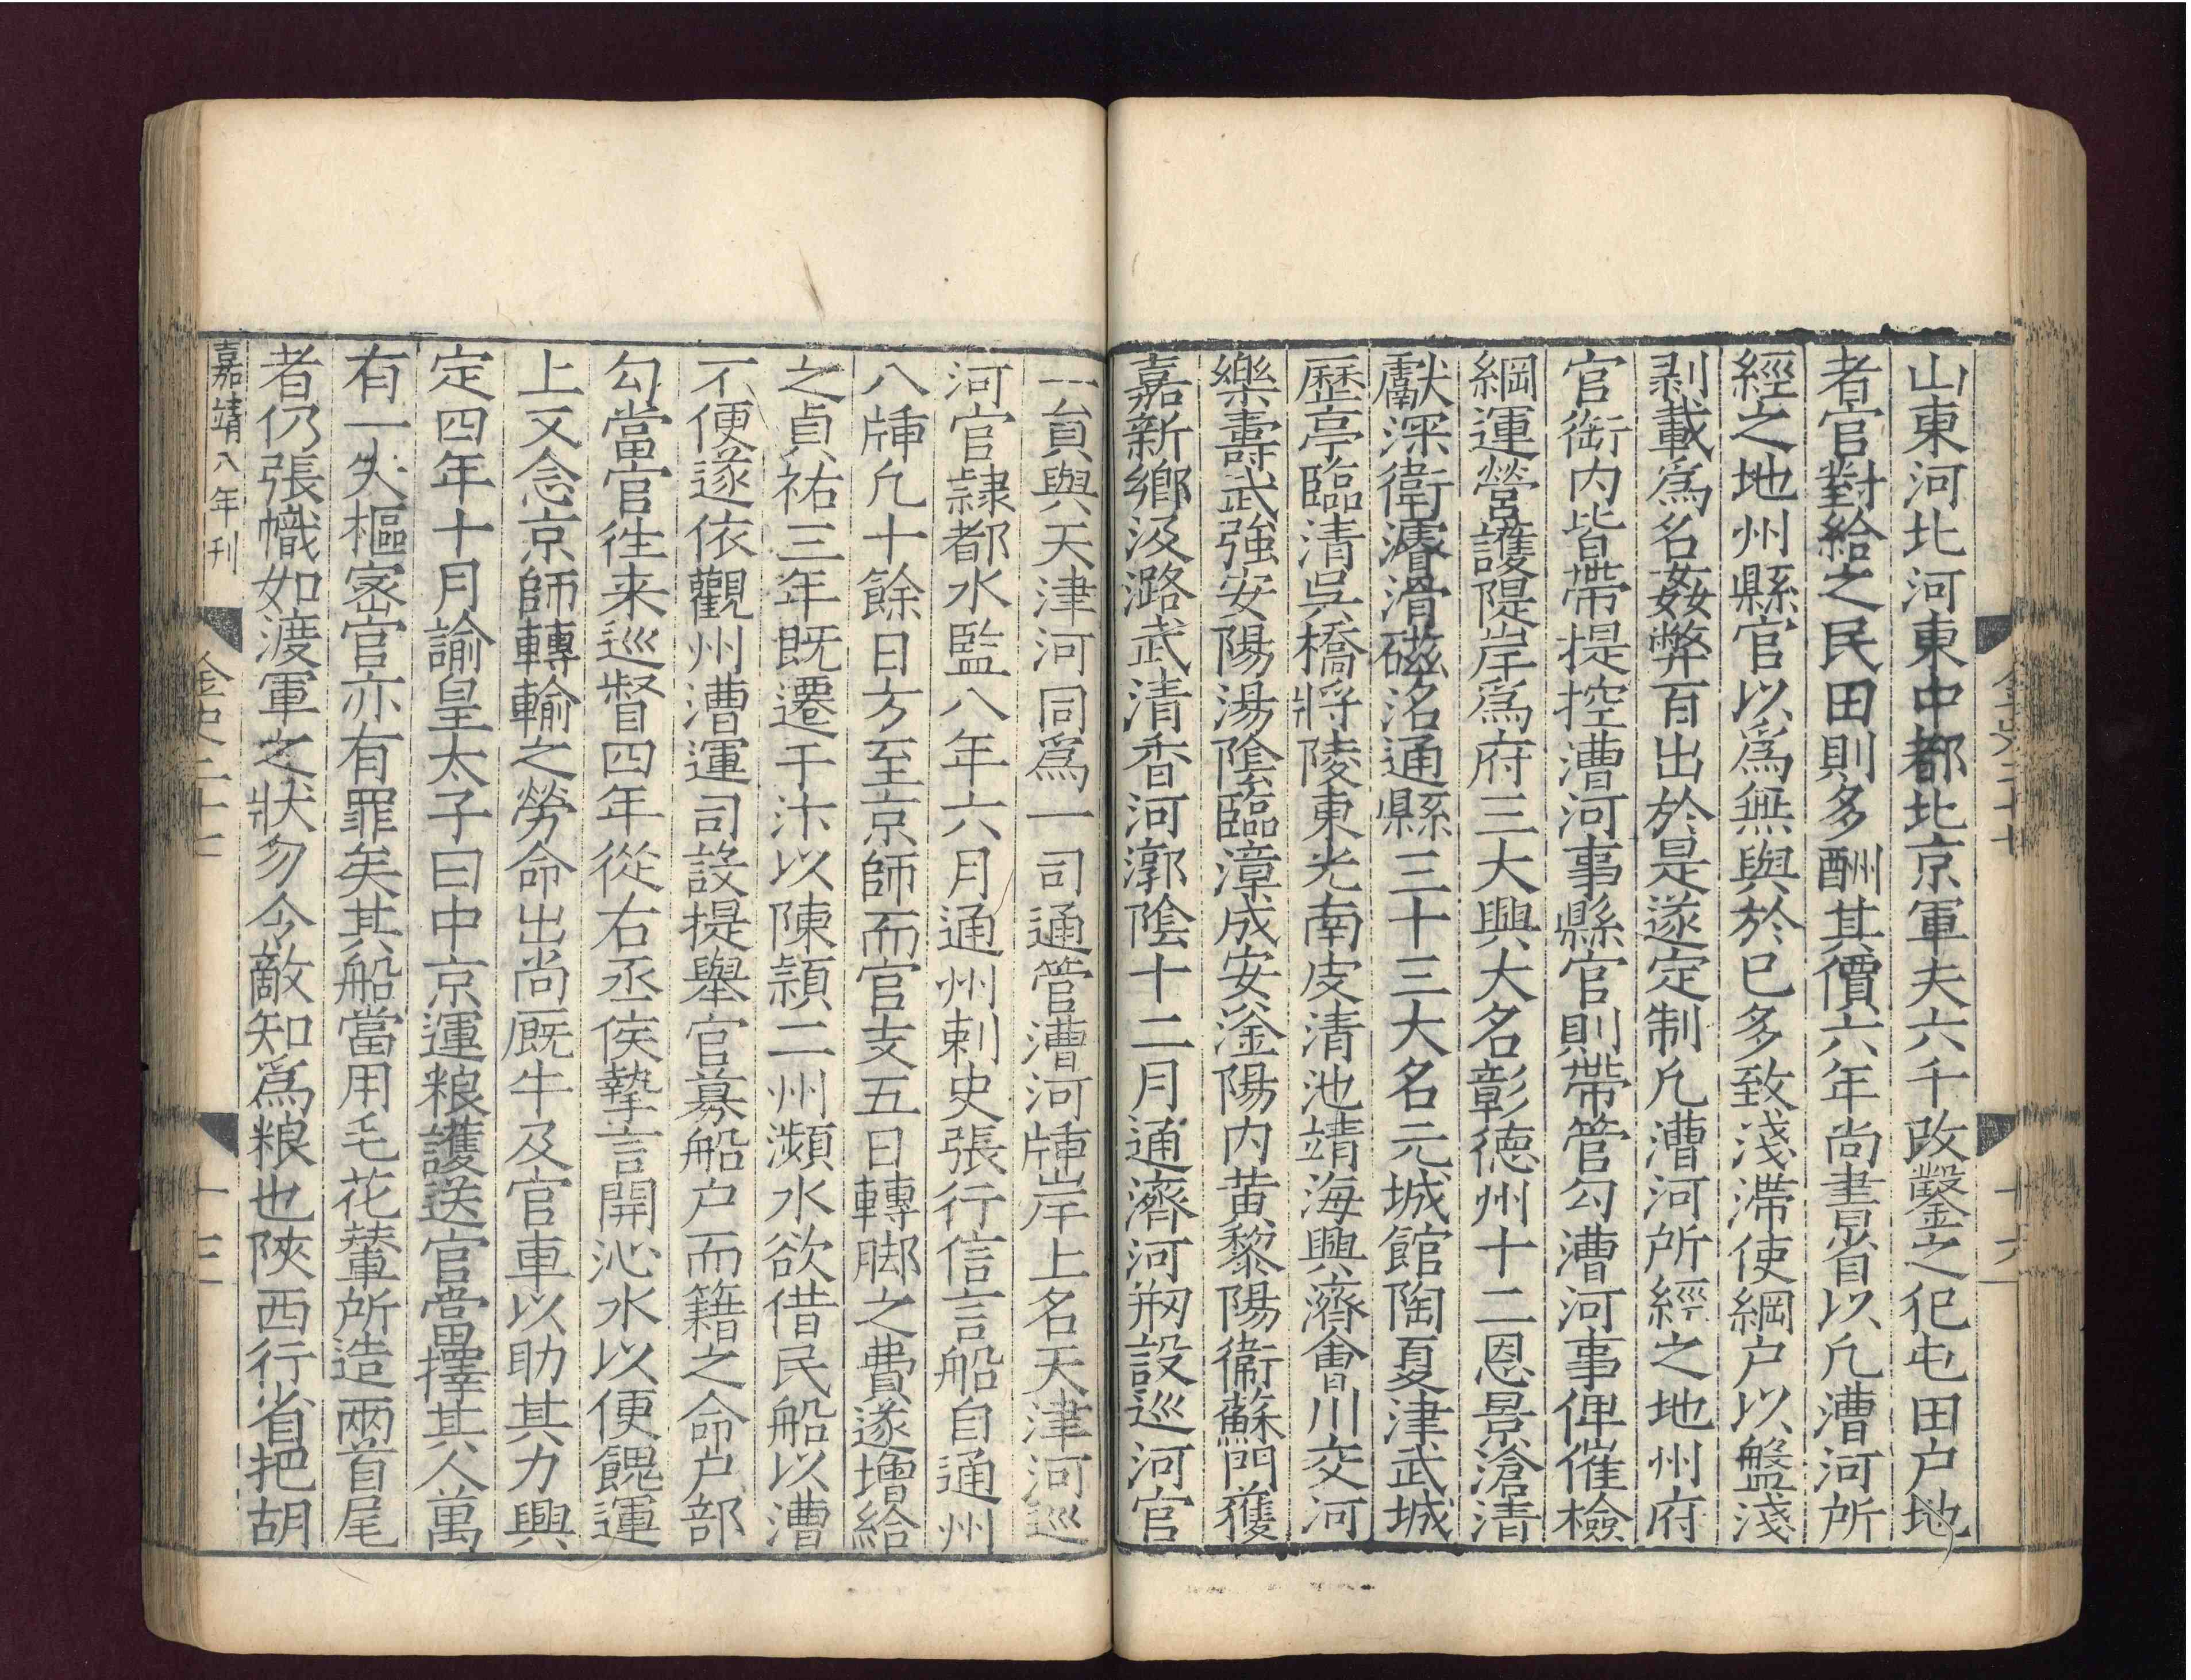 山東河北河東中都北京軍夫六千改鑿之犯屯田户地
者官對給之民田則多酬其價六年尚書省以凢漕河所
經之地州縣官以爲無與於已多致淺滯使綱户以盤淺
剥載爲名姦弊百出於是遂定制凢漕河所經之地州府
官銜内皆帶提控漕河事縣官則帶管勾漕河事俾催檢
綱運營護隄岸爲府三大興大名彰德州十二恩景滄清
獻深衛濬滑磁洺通縣三十三大名元城館陶夏津武城
歷亭臨清吳橋將陵東光南皮清池靖海興濟會川交河
樂壽武強安陽湯陰臨漳成安滏陽内黄黎陽衞蘇門獲
嘉新鄉汲潞武清香河漷陰十二月通濟河剏設巡河官
一員與天津河同爲一司通管漕河牐岸上名天津河巡
河官隷都水監八年六月通州刺史張行信言船自通州
八牐凢十餘日方至京師而官支五日轉脚之費遂增給
之貞祐三年既遷于汴以陳潁二州瀕水欲借民船以漕
不便遂依觀州漕運司設提舉官募船户而籍之命户部
勾當官徃来巡督四年從右丞侯摯言開沁水以便餽運
上又念京師轉輸之勞命出尚厩牛及官車以助其力興
定四年十月諭皇太子曰中京運粮護送官當擇其人萬
有一失樞密官亦有罪矣其船當用毛花輦所造兩首尾
者仍張幟如渡軍之狀勿令敵知爲粮也陜西行省把胡
嘉靖八年刊
金史二十七
十三